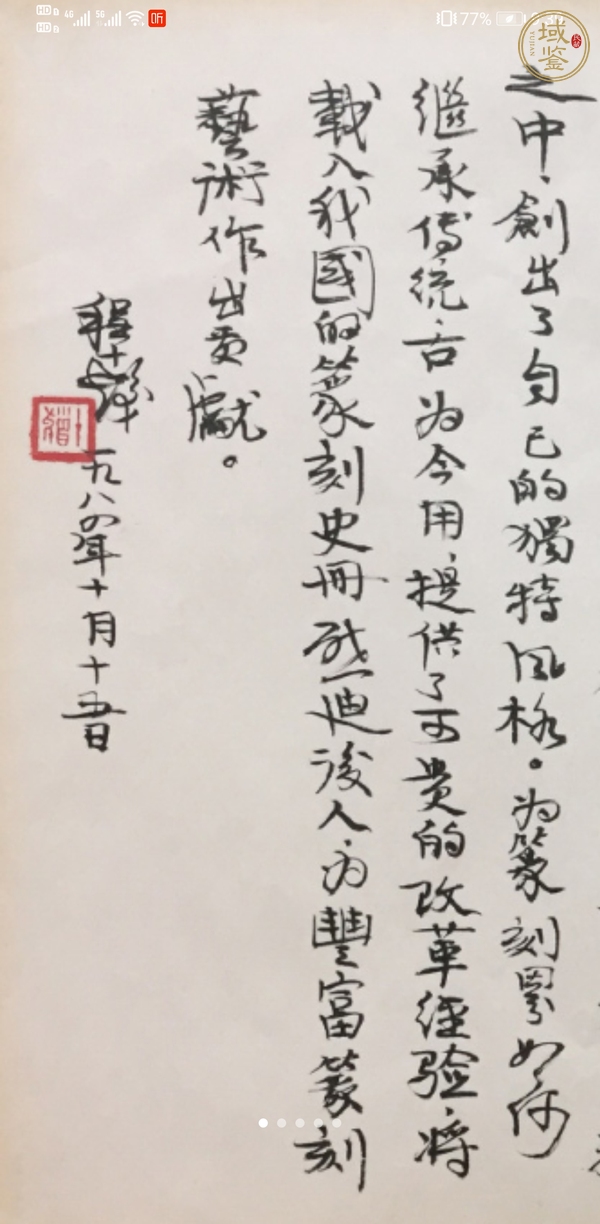 之中、創出了自己的獨特風格。为篆刻界如何
继承传统、古为今用、提供了可贵的改革经验、将
載入我國的篆刻史冊、啟迪後人、为豐富篆刻
藝術作出贡獻。
程十髮
一九八四年十月十五日
77%
域鉴
YUJIAN